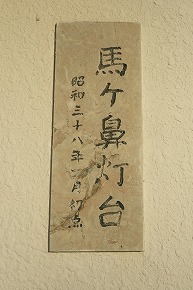 馬ヶ鼻灯台
昭和三十八年 月初点